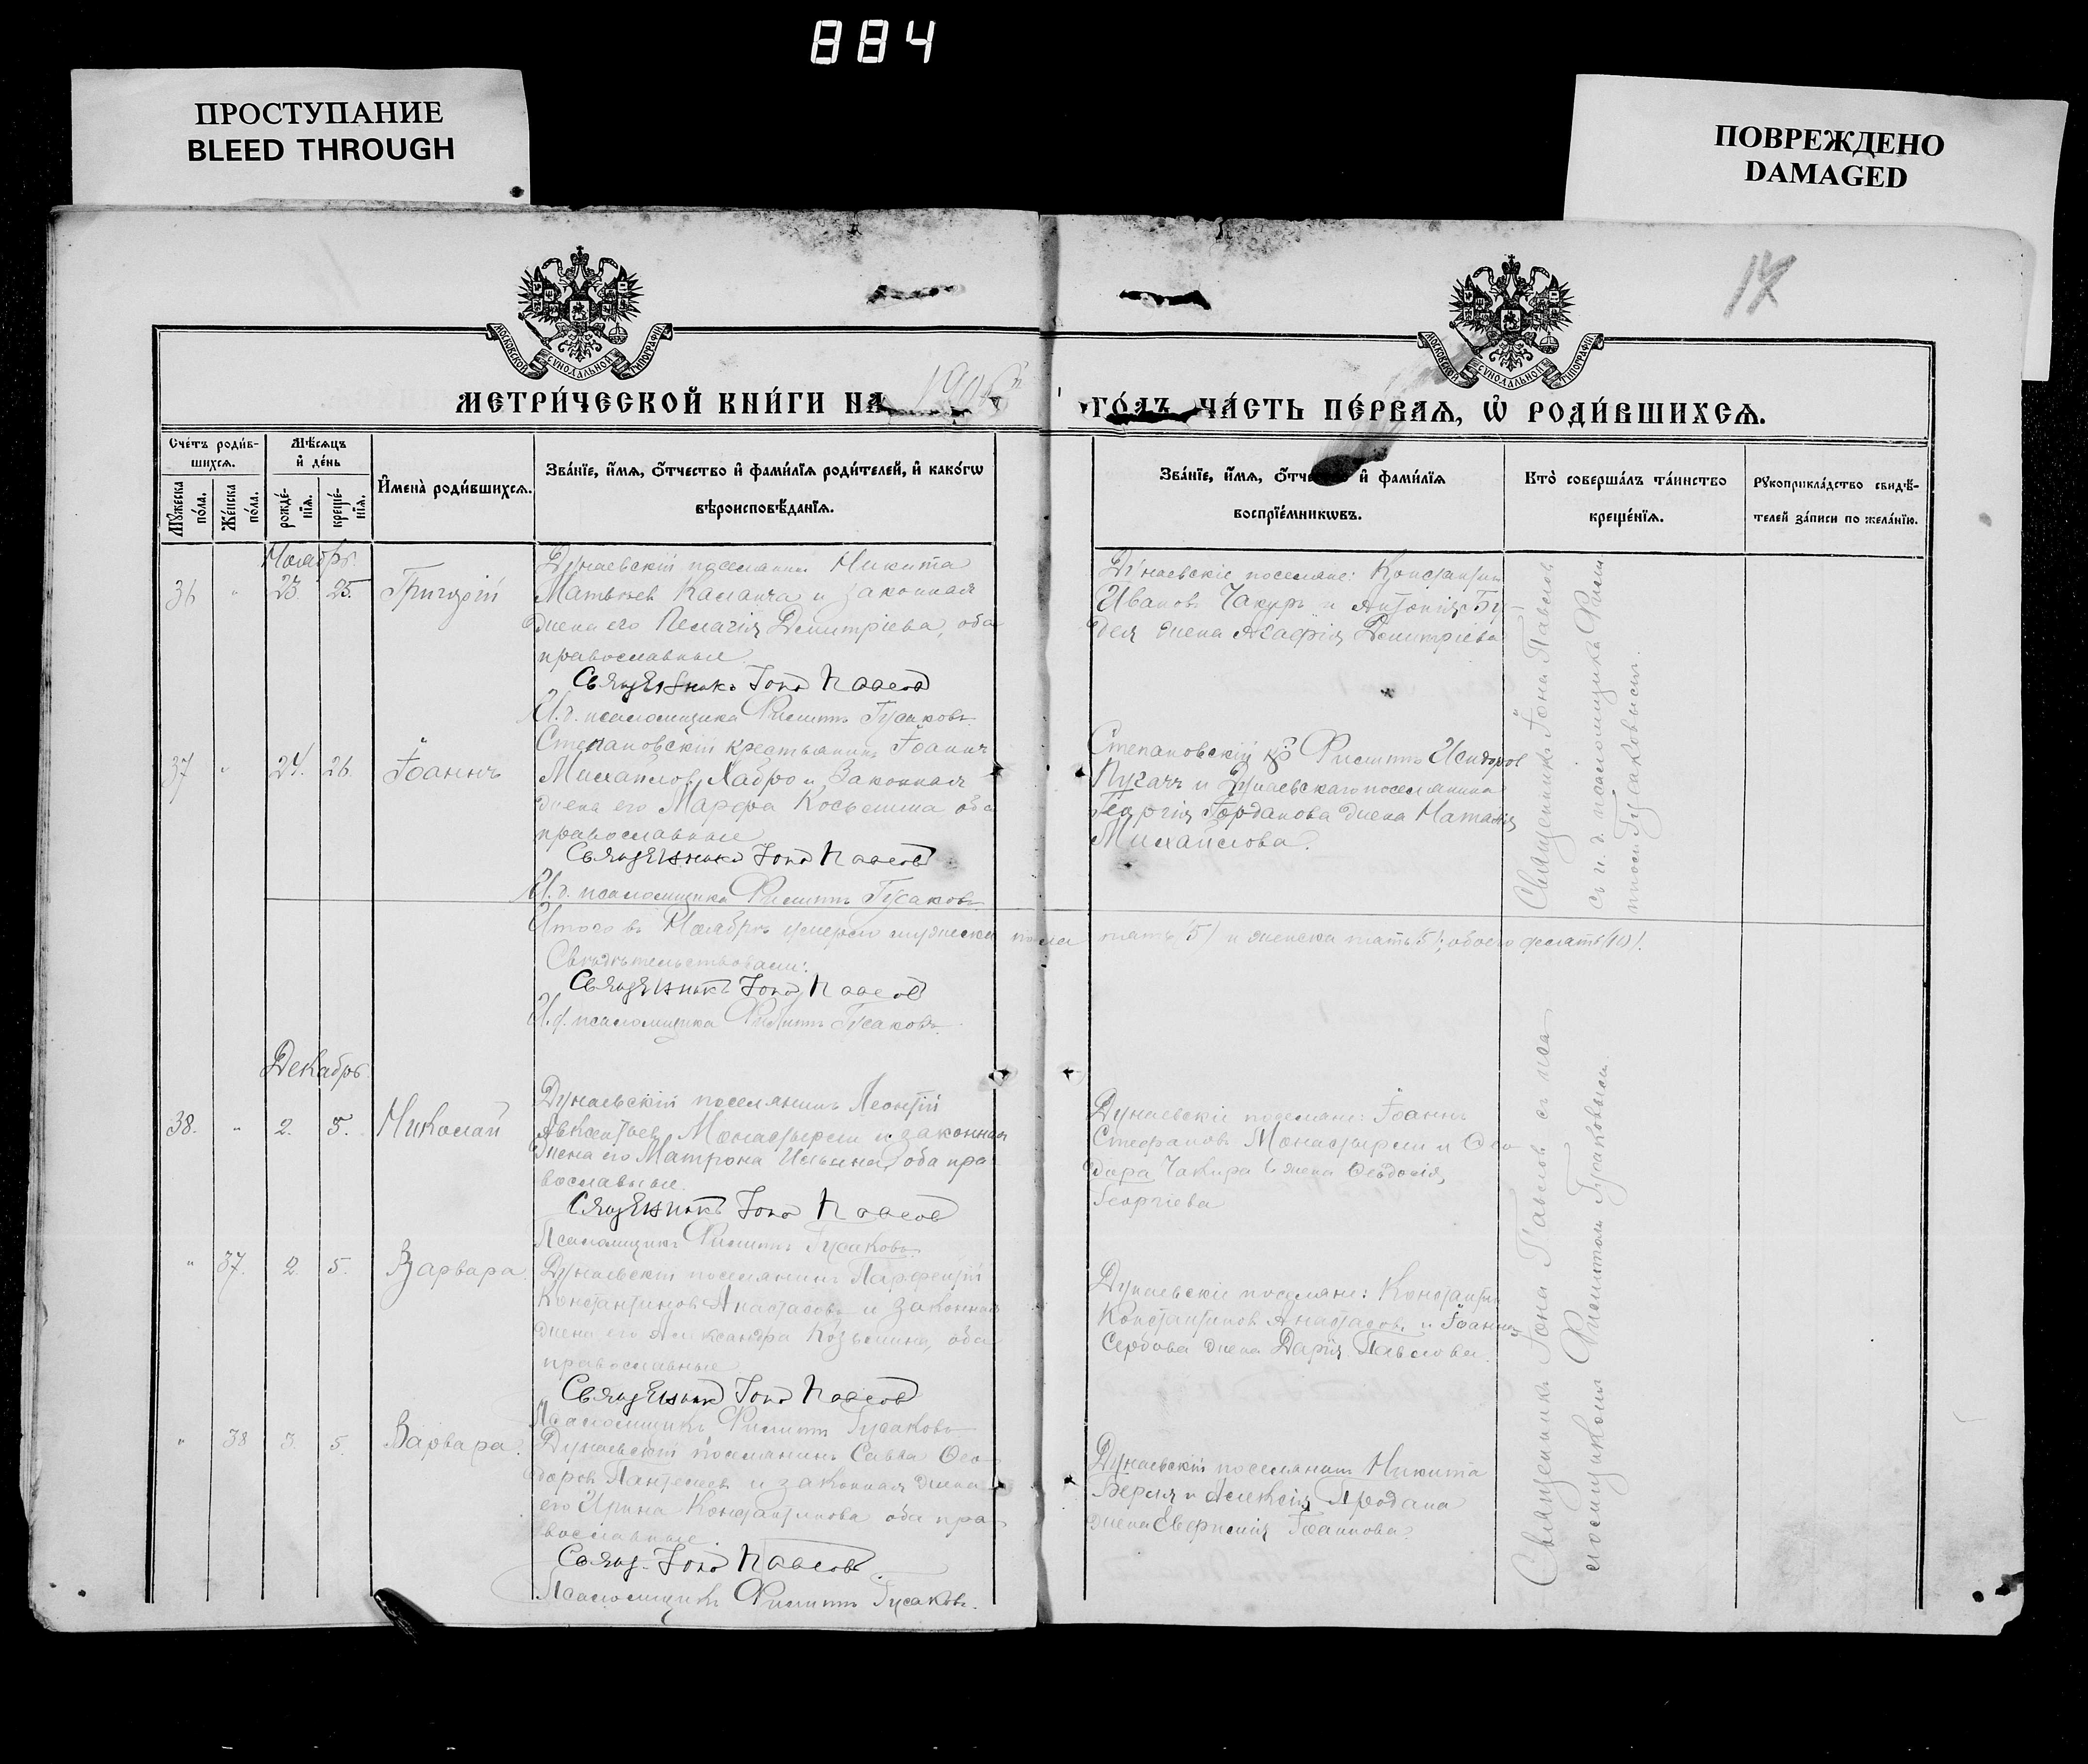 884
ПРОСТУПАНИЕ
BLEED THROUGH
ПОВРЕЖДЕНО
DAMAGED
17
МОСКОВСКОЙ СѴНОДАЛЬНОЙ ТИПОГРАФІИ
МОСКОВСКОЙ СѴНОДАЛЬНОЙ ТИПОГРАФІИ
МЕТРИ́ЧЕСКОЙ КНИ́ГИ НА 1906
ГО́ДЪ ЧА́СТЬ ПЕ́РВАѦ, Ѡ҆ РОДИ́ВШИХСѦ.
Сче́тъ роди́в-
шихсѧ.
Мꙋ́жеска по́ла.
Же́нска по́ла.
Мѣ́сѧцъ
и҆ де́нь
рожде́-
нїѧ.
креще́-
нїѧ.
И҆мена̀ роди́вшихсѧ.
Зва́нїе, и҆́мѧ, ѻ҆́тчество и҆ фами́лїѧ роди́телей, и҆ како́гѡ
вѣроисповѣ́данїѧ.
Зва́нїе, и҆́мѧ, ѻ҆́тчество и҆ фами́лїѧ
воспрїе́мникѡвъ.
Кто̀ соверша́лъ та́инство
креще́нїѧ.
Рꙋкоприкла́дство свидѣ́-
телей за́писи по жела́нїю.
Ноябрь
36 " 23. 25. Григорій
Дунаевскій поселянинъ Никита
Матвѣевъ Каланча и законная
жена его Пелагія Димитріева, оба
православные
Священникъ Іона Павловъ
И. д. псаломщика Филиппъ Гусаковъ
Дунаевскіе поселяне: Константинъ
Ивановъ Чакиръ и Антонія Бу
жена Агафія Димитріева
37 " 24. 26. Іоаннъ
Степановскій крестьянинъ Іоаннъ
Михайловъ Хабро и законная
жена его Марфа Косьмина оба
православные
Священникъ Іона Павловъ
И. д. псаломщика Филиппъ Гусаковъ
Степановскій кр. Филиппъ Исидоровъ
Пугачъ и Дунаевскаго поселянина
Георгія Іорданова жена Наталія
Михайлова.
Священникъ Іона Павловъ
съ и. д. псаломщика Фили
ппом Гусаковымъ.
Итого въ Ноябрѣ умерло мужеска пола пять (5) и женска пять (5), обоего десять (10).
Свидѣтельствовали:
Священникъ Іона Павловъ
И. д. псаломщика Филиппъ Гусаковъ.
Декабрь
38. " 2. 5. Николай
Дунаевскій поселянинъ Леонтій
Авксентьевъ Монастырли и законная
жена его Матрона Ильина, оба пра
вославные.
Священникъ Іона Павловъ
Псаломщикъ Филиппъ Гусаковъ
Дунаевскіе поселяне: Іоаннъ
Стефановъ Монастырли и Ѳео
дора Чакира жена Ѳеодосія
Георгіева
" 37. 2. 5. Варвара
Дунаевскій поселянинъ Парфентій
Константиновъ Анастасовъ и законная
жена его Александра Козьмина, оба
православные
Священникъ Іона Павловъ
Псаломщикъ Филиппъ Гусаковъ
Дунаевскіе поселяне: Константинъ
Константиновъ Анастасовъ и Іоанна
Сербова жена Дарія Павлова.
" 38 3. 5. Варвара.
Дунаевскій поселянинъ Савва Ѳео
доровъ Пантелеевъ и законная жена
его Ирина Константинова оба пра
вославные
Свящ. Іона Павловъ
Псаломщикъ Филиппъ Гусаковъ.
Дунаевскій поселянинъ Никита
и Алексія Продана
жена Евфимія Іоаннова.
Священникъ Іона Павловъ съ пса
ломщикомъ Филиппомъ Гусаковымъ.